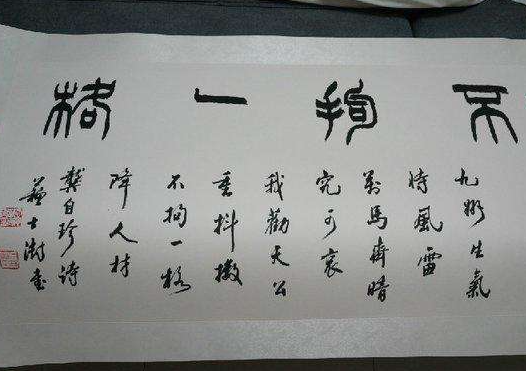 不拘一格
九州生氣
恃風雷
萬馬齊喑
究可哀
我勸天公
重抖擻
不拘一格
降人材
龔自珍詩
蘇士澍書